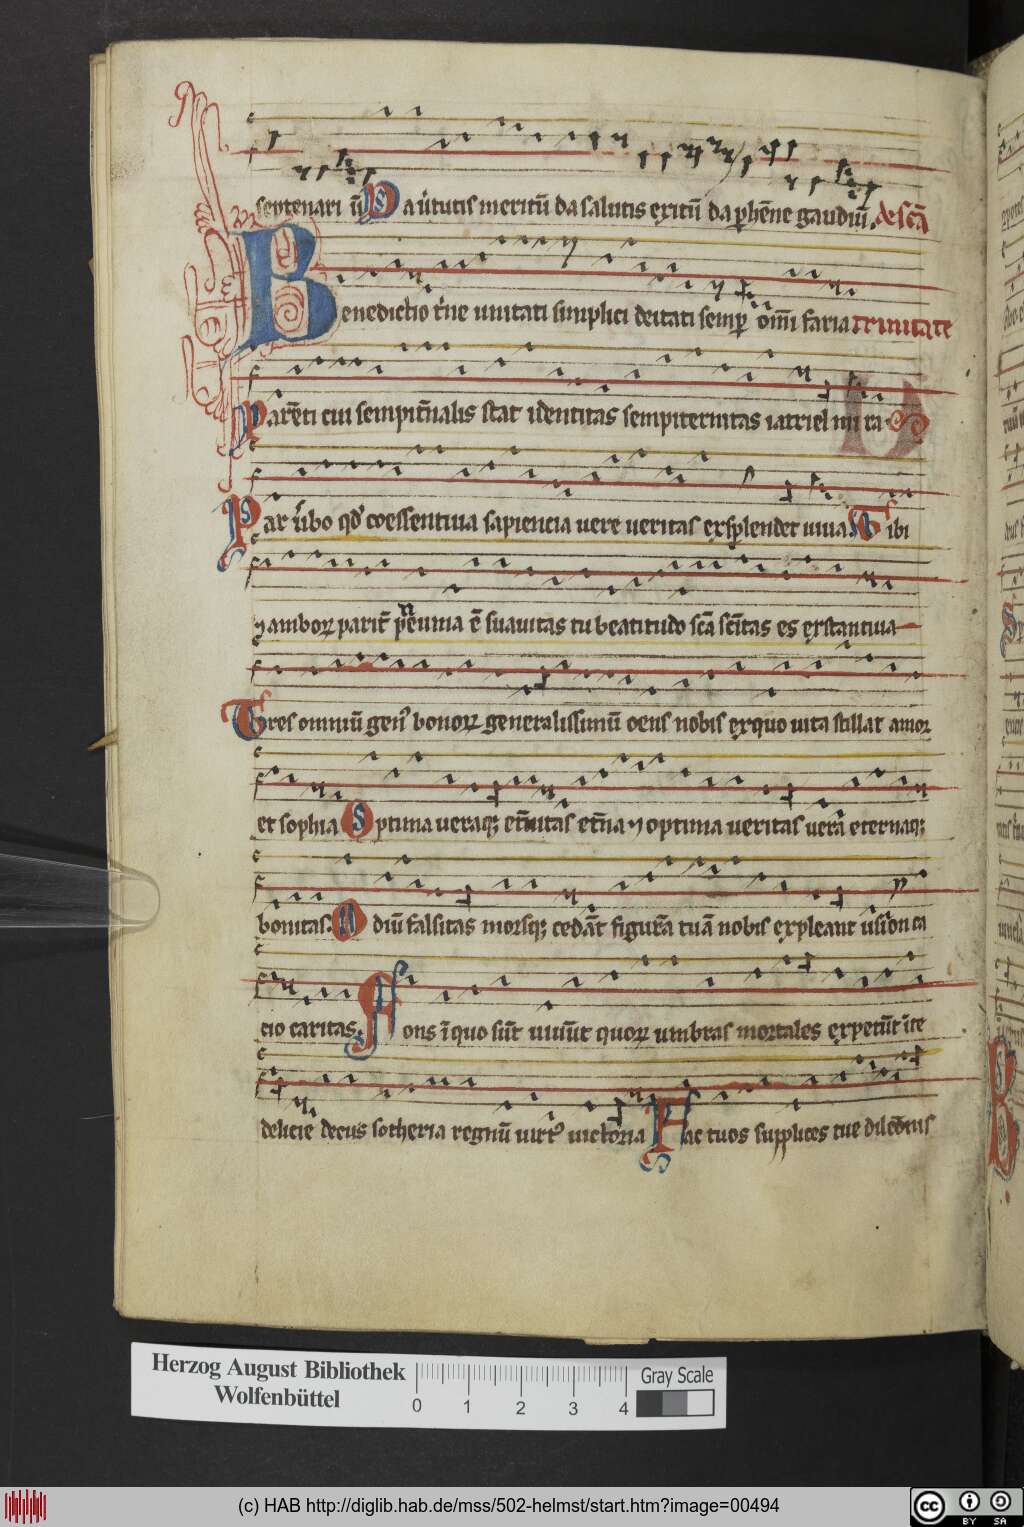 septenariū Da v́tutis meritū da salutis exitū da phēne gaudiū. de scā
Benedictio t̓ne unitati simplici deitati semp om̄i faria trinitate
Parēti cui sempit̄nalis stat idenтitas sempiternitas
Par v̓bo qd̓ coessentiua sapientia uere ueritas exsplendet uiua. Tibi
⁊ amboꝝ parit̄ pneuma ē suauitas tu beatitudo scā scītas es exstantiua
Tres omniū gen̓ bonoꝝ generalissimū oens nobis exquo uita stillat amor
et sophia Optima ueraq; et̄nitas et̄na ⁊ optima ueritas uerā eternaq;
bonitas. Odiū falsitas morsq; cedāt figurā tuā nobis expleant
cio caritas. Fons ī quo sūt uiuūt quoꝝ umbras mortales expetūt
delicie decus sotheria regnū uirt̓ uictoria Fac tuos supplices tue
Herzog August Bibliothek
Wolfenbüttel
0 1 2 3 4
Gray Scale
(c) HAB http://diglib.hab.de/mss/502-helmst/start.htm?image=00494
cc BY SA